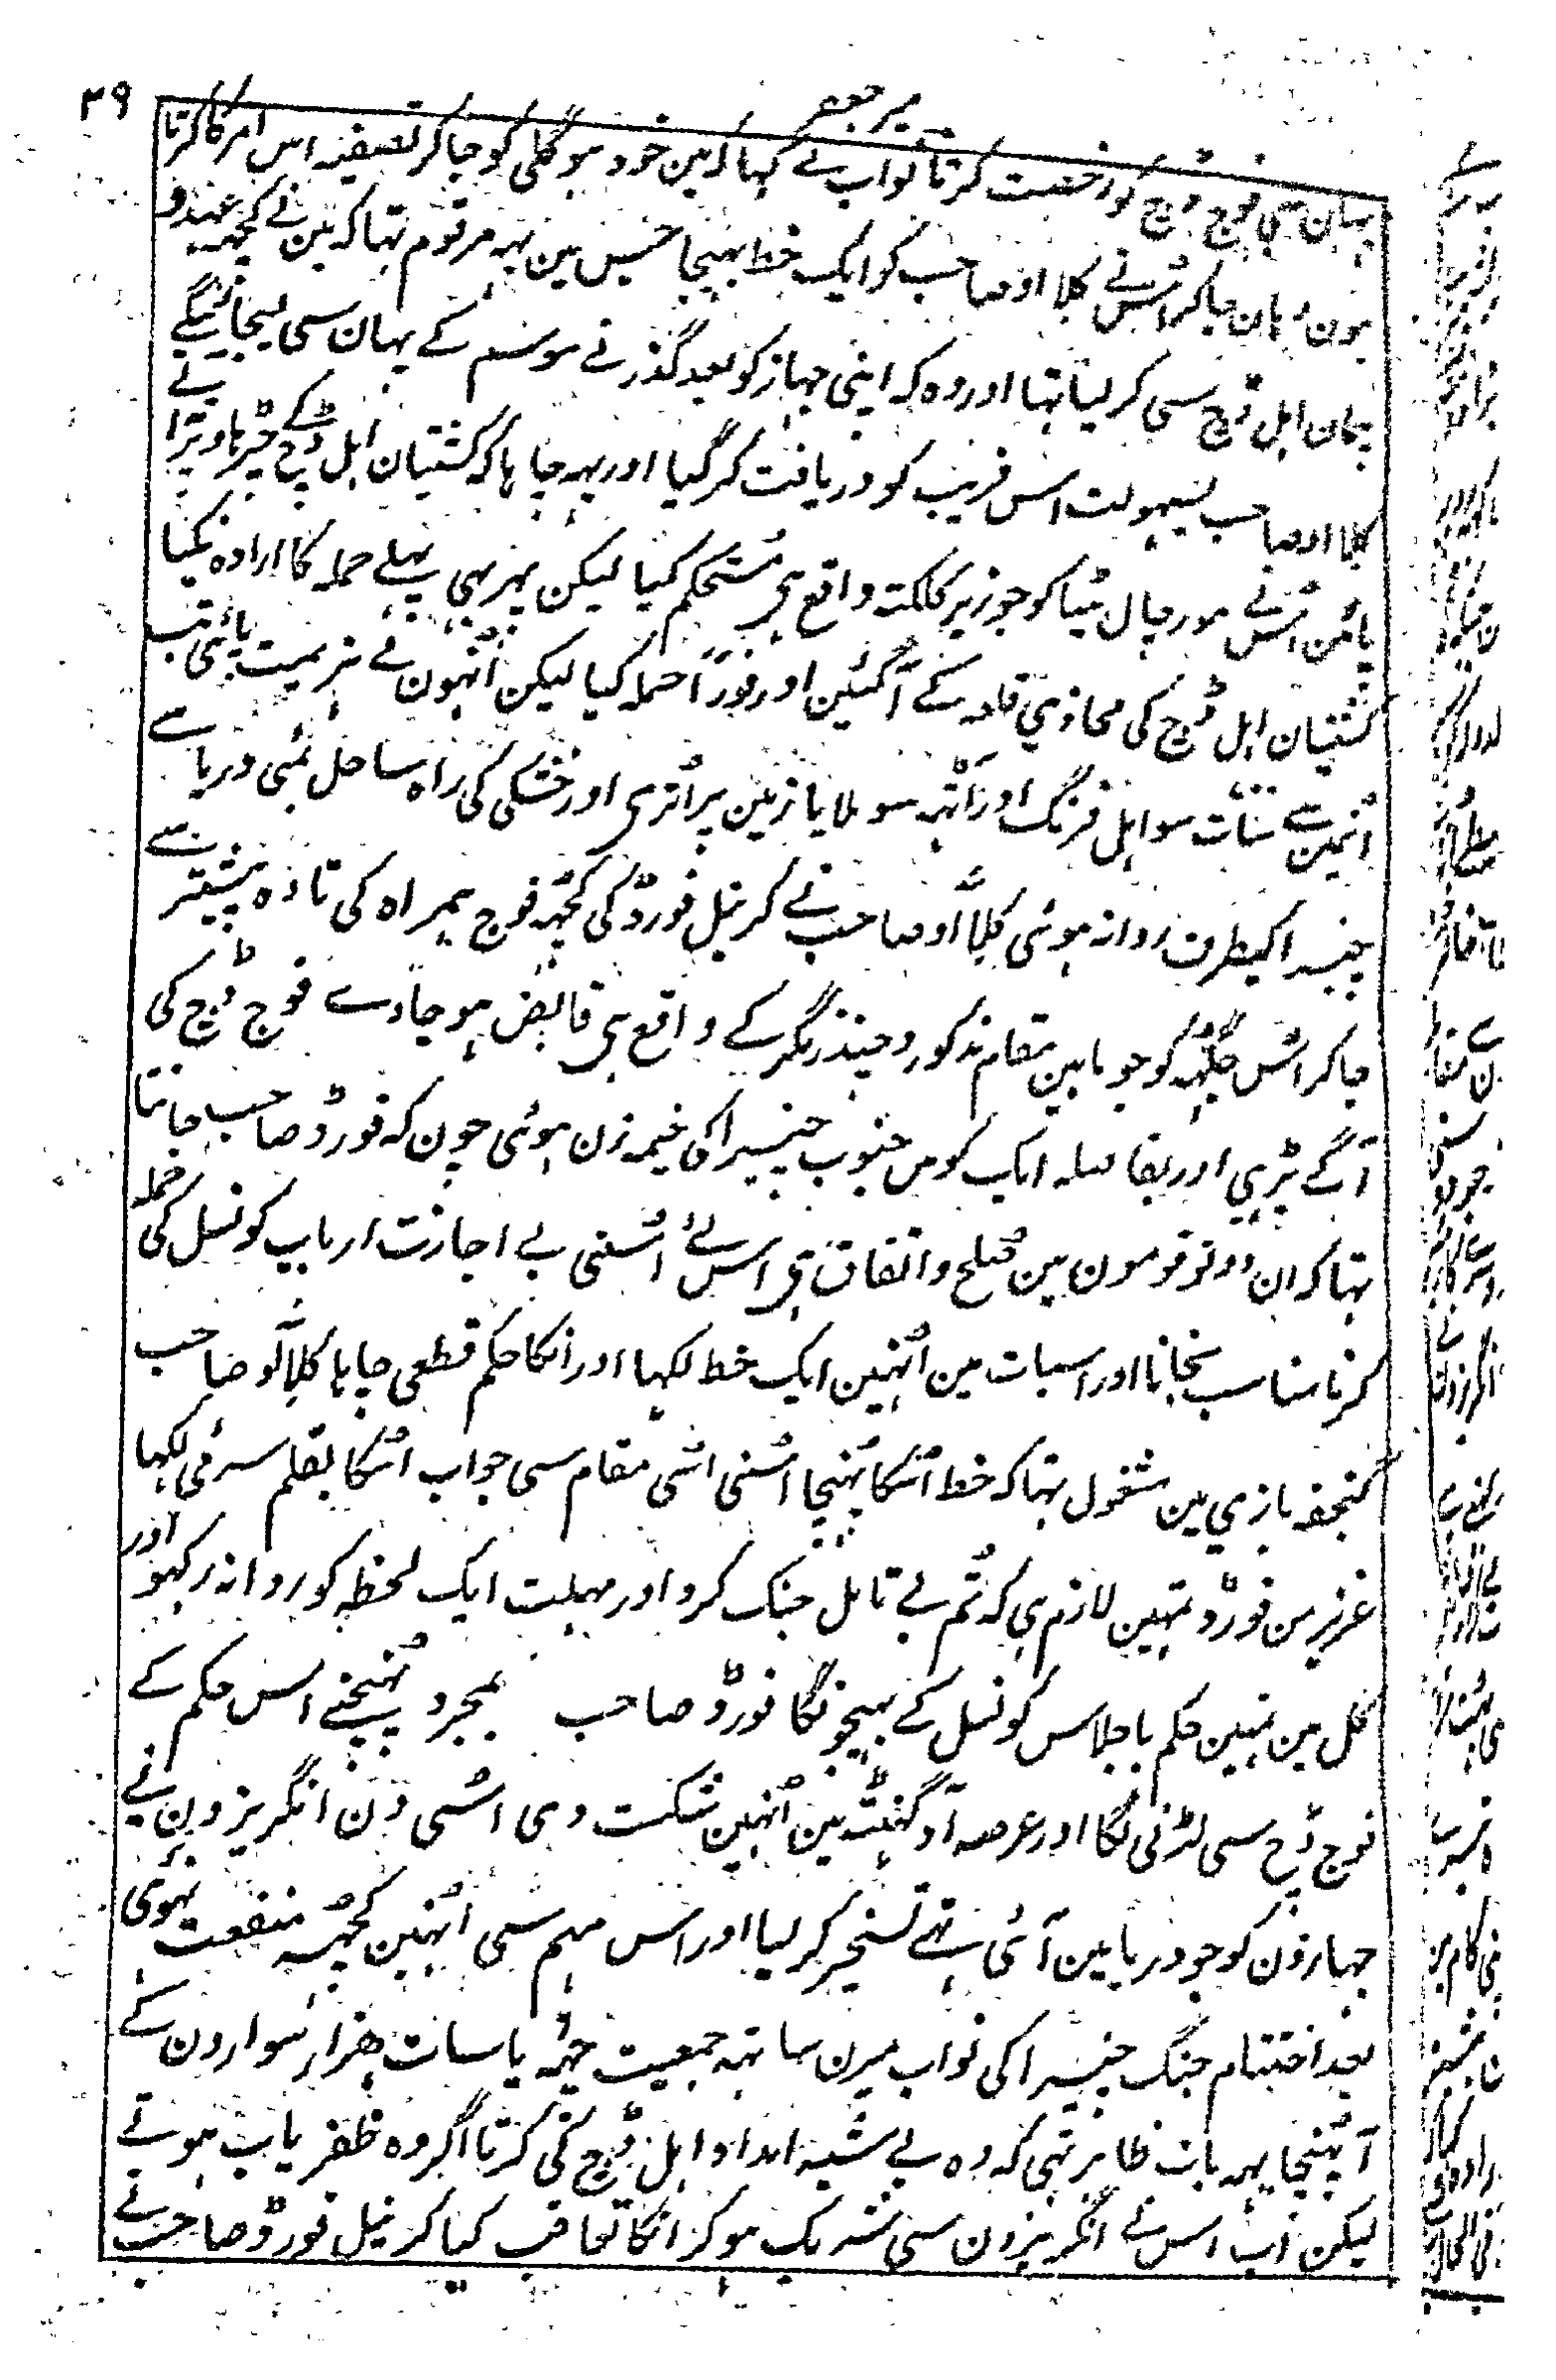 میر جعفر
۳۹
یہان سی فوج ڈچ کو رخصت کرتا نواب نے کہا کہ مین خود ہوگلی کو جا کر تصفیہ اس امر کا کرتا
ہون وہان جا کر اُس نے کلا اوصاحب کو ایک خط بھیجا جسین مین یہہ مرقوم تہا کہ مین نے کچہہ عہد و
پیمان اہل ڈچ سی کر لیا تہا اور وہ کہ اپنی جہاز کو بعد گذرنے موسم کے یہان سی لیجائینگے
کلا اوصاحب بسہولت اس فریب کو دریافت کر گیا اور یہہ چاہا کہ کشتیان اہل ڈچ کے چڑہاو پر آنے
پائین اُس نے مورچال ٹیٹا کو جو زیر کلکتہ واقع ہی مستحکم کیا لیکن پہر بہی پہلے حملہ کا ارادہ نکیا
کشتیان اہل ڈچ کی محاذی قلعہ کے آگئین اور فوراً حملہ کیا لیکن اُنہون نے ہزیمت پائی تب
اُنمین سے سات سو اہل فرنگ اور آٹہہ سو ملایا زمین پر اُتری اور خشکی کی راہ ساحل نمبی دریا سے
چنسرا کیطرف روانہ ہوئی کلااوصاحب نے کرنیل فورڈ کی کچہہ فوج ہمراہ کی تا وہ پیشتر سے
جا کر اُس جگہہ کو جو مابین مقام مذکور و چندرنگر کے واقع ہی قابض ہو جاوے فوج ڈچ کی
آگے بڑہی اور بفاصلہ ایک کوس جنوب چنسرا کی خیمہ زن ہوئی چون کہ فورڈ صاحب جانتا
تہا کہ ان دونو قومون مین صلح و اتفاق ہی اس لئے اُسنی بے اجازت ارباب کونسل کی حملہ
کرنا مناسب نجانا اور اسبات مین اُنہین ایک خط لکہا اور انکا حکم قطعی چاہا کلااوصاحب
گنجفہ بازی مین مشغول تہا کہ خط اُسکا پہنچا اُسنی اُسی مقام سی جواب اُسکا بقلم سرمی لکہا
عزیز من فورڈ تمہین لازم ہی کہ تم بے تامل جنگ کرو اور مہلت ایک لحظہ کو روا نہ رکہو اور
کل مین تمہین حکم باجلاس کونسل کے بھیجونگا فورڈ صاحب بمجرد پہنچنے اس حکم کے
فوج ڈچ سی لڑنی لگا اور عرصہ آدہ گہنٹہ مین اُنہین شکست دی اُسی دن انگریزون نے
جہازون کو جو دریا مین آئی تہے تسخیر کر لیا اور اس مہم سی اُنہین کچہہ منفعت نہوی
بعد اختتام جنگ چنسرا کی نواب میرن ساتہہ جمعیت چہہ یا سات ہزار سوارون کے
آ پہنچا یہہ بات ظاہر تہی کہ وہ بے شبہ امداد اہل ڈچ کی کرتا اگر وہ ظفر یاب ہوتے
لیکن اب اس نے انگریزون سی شریک ہو کر انکا تعاقب کیا کرنیل فورڈ صاحب نے